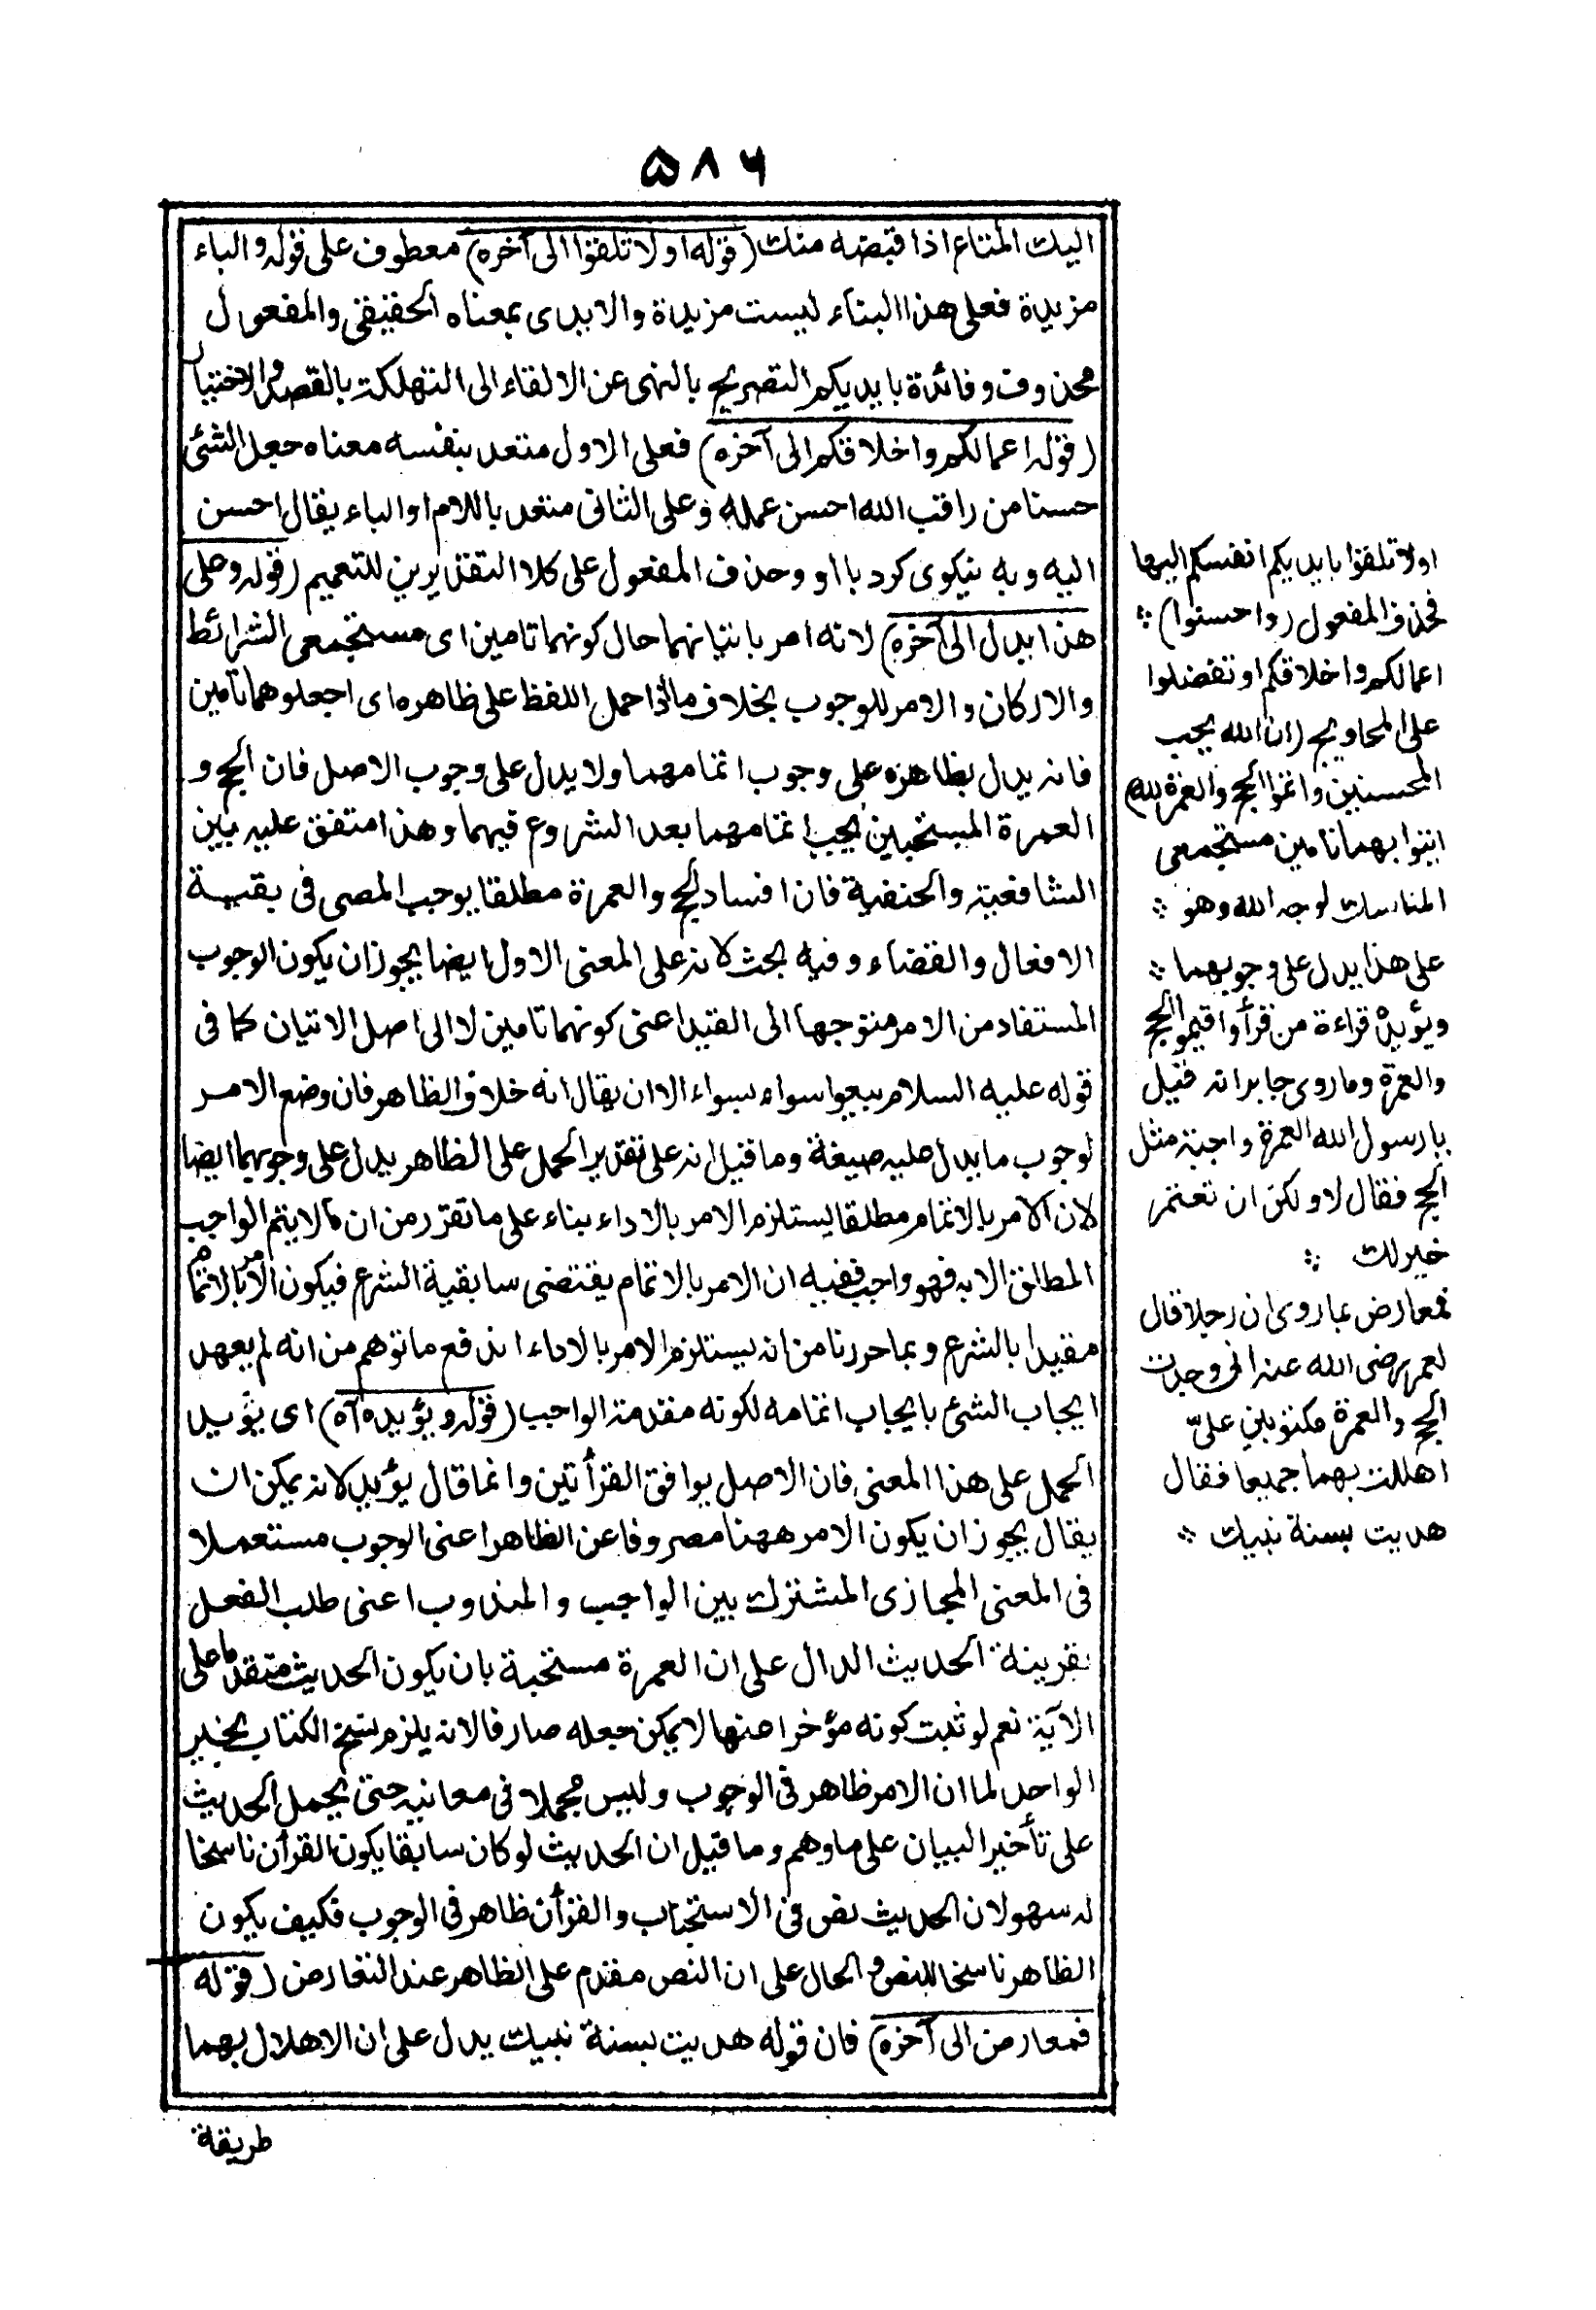 ۵۸۶
اليك المتاع اذا قبضه منك (قوله او لا تلقوا الى آخره) معطوف على قوله والباء
مزيدة فعلى هذا الباء ليست مزيدة والايدى بمعناه الحقيقى والمفعول
محذوف وفائدة بايديكم التصريح بالنهى عن الالقاء الى التهلكة بالقصد والاختيار
(قوله اعمالكم واخلاقكم الى آخره) فعلى الاول متعد بنفسه معناه جعل الشئ
حسنا من راقب الله احسن عمله وعلى الثانى متعد باللام او الباء يقال احسن
اليه وبه نيكوى كرد با او وحذف المفعول على كلا التقديرين للتعميم (قوله وهى على
هذا يدل الى آخره) لانه امر باتيانهما حال كونهما تامين اى مستجمعى الشرائط
والاركان والامر للوجوب بخلاف ما اذا حمل اللفظ على ظاهره اى اجعلوهما تامين
فانه يدل بظاهره على وجوب اتمامهما ولا يدل على وجوب الاصل فان الحج و
العمرة المستحبين يجب اتمامهما بعد الشروع فيهما وهذا متفق عليه بين
الشافعية والحنفية فان افساد الحج والعمرة مطلقا يوجب المضى فى بقية
الافعال والقضاء وفيه بحث لانه على المعنى الاول ايضا يجوز ان يكون الوجوب
المستفاد من الامر متوجها الى القيد اعنى كونهما تامين لا الى اصل الاتيان كما فى
قوله عليه السلام بيعوا سواء بسواء الا ان يقال انه خلاف الظاهر فان وضع الامر
لوجوب ما يدل عليه صيغة وما قيل انه على تقدير الحمل على الظاهر يدل على وجوبهما ايضا
لان الامر بالاتمام مطلقا يستلزم الامر بالاداء بناء على ما تقرر من ان ما لا يتم الواجب
المطلق الا به فهو واجب ففيه ان الامر بالاتمام يقتضى سابقية الشرع فيكون الامر بالاتمام
مقيدا بالشرع وبما حررنا من انه يستلزم الامر بالاداء اندفع ما توهم من انه لم يعهد
ايجاب الشئ بايجاب اتمامه لكونه مقدمة الواجب (قوله ويؤيده آه) اى يؤيد
الحمل على هذا المعنى فان الاصل يوافق القرأتين وانما قال يؤيد لانه يمكن ان
يقال يجوز ان يكون الامر ههنا مصروفا عن الظاهر اعنى الوجوب مستعملا
فى المعنى المجازى المشترك بين الواجب والمندوب اعنى طلب الفعل
بقرينة الحديث الدال على ان العمرة مستحبة بان يكون الحديث متقدما على
الآية نعم لو ثبت كونه مؤخرا عنها لا يمكن جعله صارفا لانه يلزم نسخ الكتاب بخبر
الواحد لما ان الامر ظاهر فى الوجوب وليس مجملا فى معانيه حتى يحمل الحديث
على تأخير البيان على ما وهم وما قيل ان الحديث لو كان سابقا يكون القرأن ناسخا
له سهو لان الحديث نص فى الاستحباب والقرأن ظاهر فى الوجوب فكيف يكون
الظاهر ناسخا للنص والحال على ان النص مقدم على الظاهر عند التعارض (قوله
فمعارض الى آخره) فان قوله هديت بسنة نبيك يدل على ان الاهلال بهما
طريقة
او لا تلقوا بايديكم انفسكم اليها
فحذف المفعول (واحسنوا)
اعمالكم واخلاقكم او تفضلوا
على المحاويج (ان الله يحب
المحسنين واتموا الحج والعمرة لله)
ائتوا بهما تامين مستجمعى
المناسك لوجه الله وهو
على هذا يدل على وجوبهما
ويؤيده قراءة من قرأ واقيموا الحج
والعمرة وما روى جابر انه قيل
يا رسول الله العمرة واجبة مثل
الحج فقال لا ولكن ان تعتمر
خير لك
فمعارض بما روى ان رجلا قال
لعمر رضى الله عنه انى وجدت
الحج والعمرة مكتوبين علىّ
اهللت بهما جميعا فقال
هديت بسنة نبيك